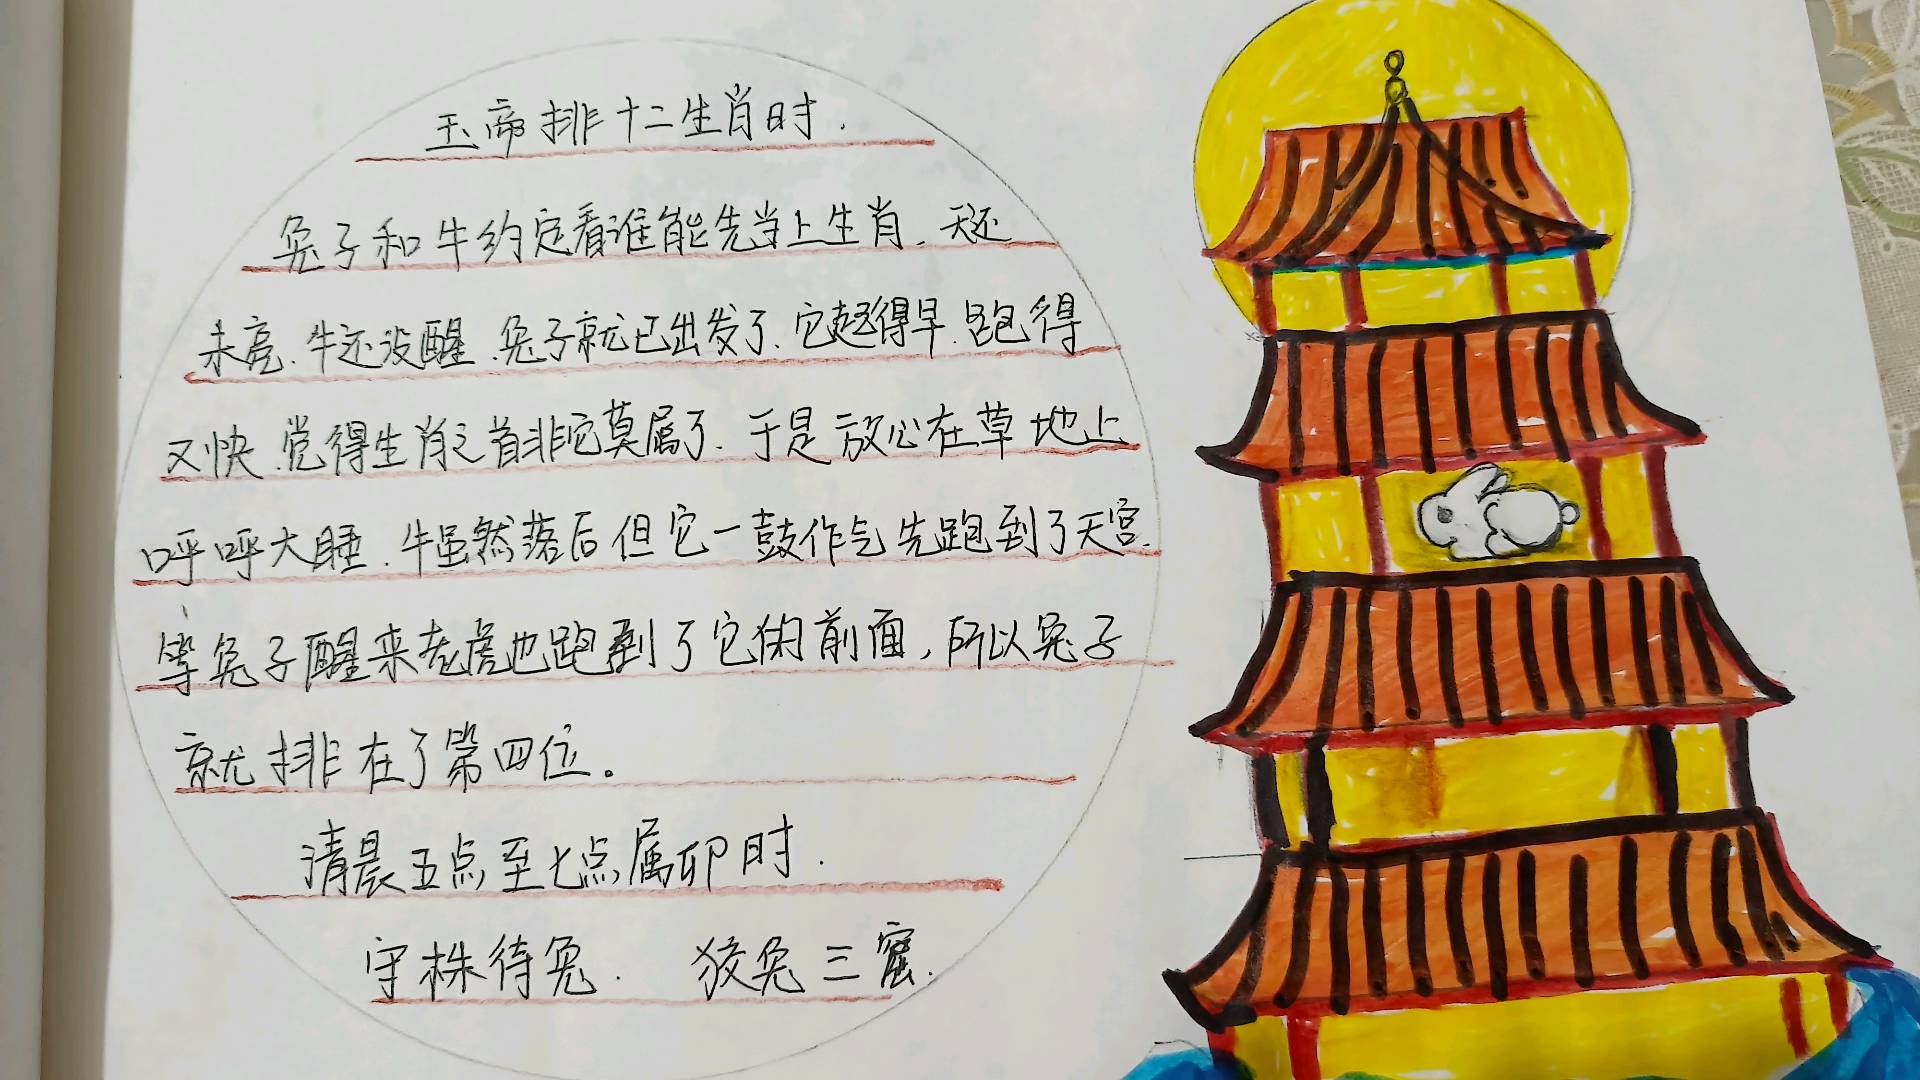 玉帝排十二生肖时.
兔子和牛约定看谁能先当上生肖.天还
未亮.牛还没醒.兔子就已出发了.它起得早.跑得
又快.觉得生肖之首非它莫属了.于是放心在草地上
呼呼大睡.牛虽然落后但它一鼓作气先跑到了天宫.
等兔子醒来老虎也跑到了它的前面,所以兔子
就排在了第四位。
清晨五点至七点属卯时.
守株待兔. 狡兔三窟.